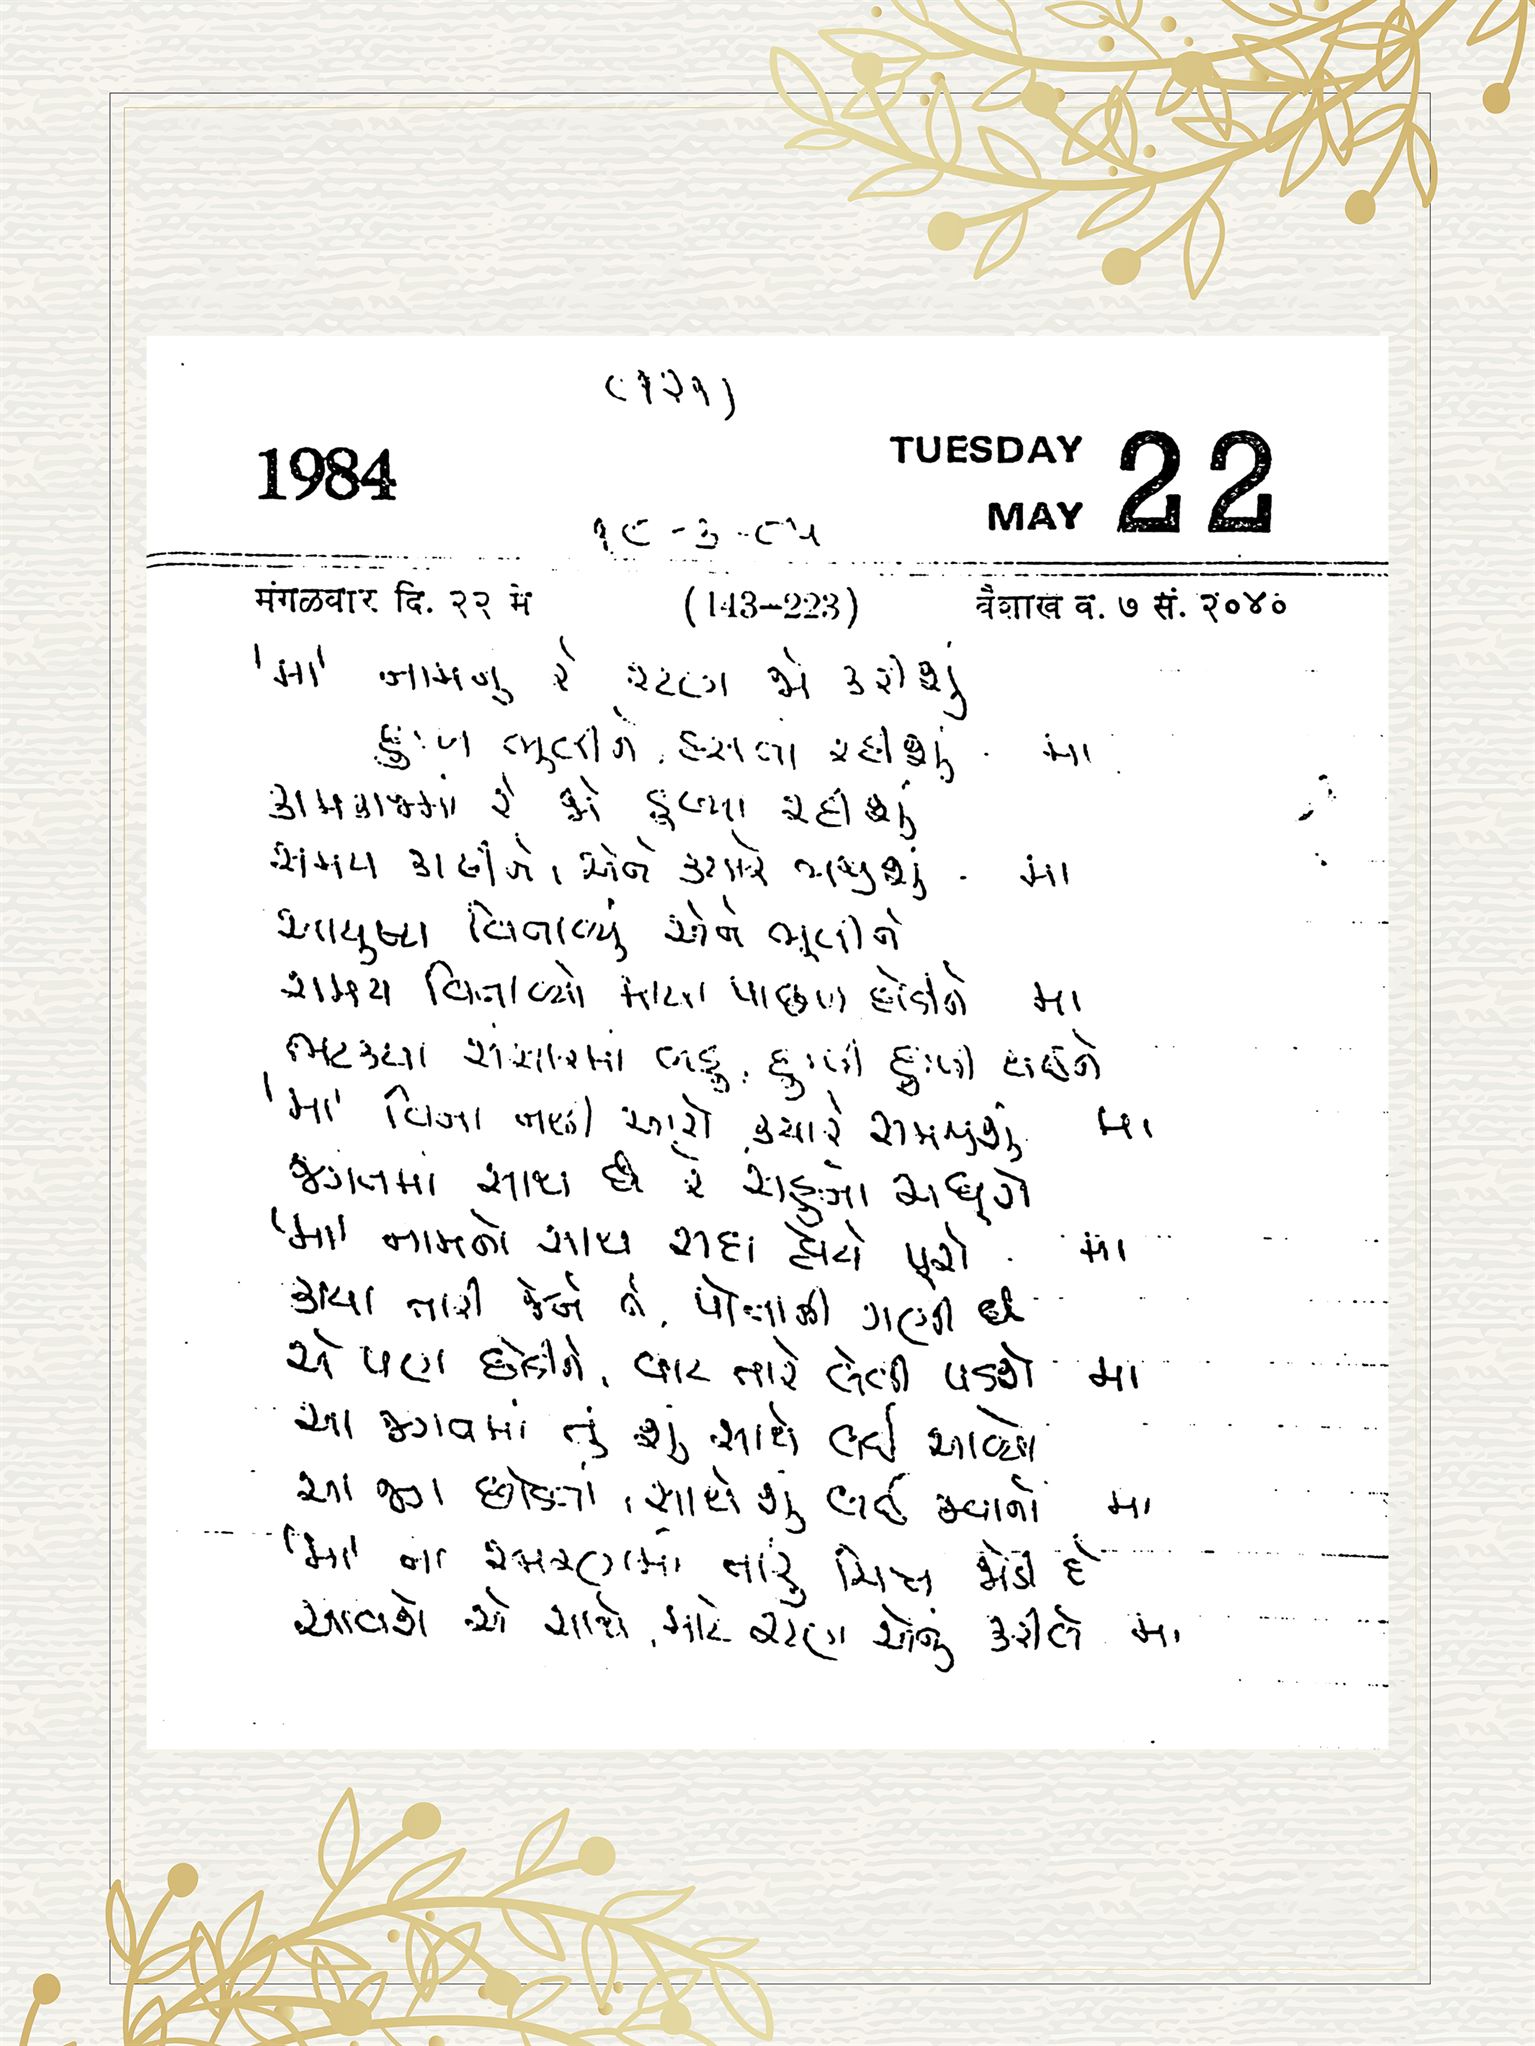 (૧૨૧)
1984
TUESDAY 22
MAY
૧૯-૩-૮૫
मंगळवार दि. २२ मे (143-223) वैशाख व. ७ सं. २०४०
'મા' નામનું રે રટણ જો કરીશું
દુઃખ ભુલીને, હસતાં રહીશું - મા
કામકાજમાં રે જો ડુબ્યા રહીશું
સમય કાઢીને, એને ક્યારે ભજીશું - મા
આયુષ્ય વિતાવ્યું એને ભૂલીને
સમય વિતાવ્યો માયા પાછળ દોડીને મા
ભટક્યા સંસારમાં બહુ, દુઃખી દુઃખી થઈને
'મા' વિના નથી આરો ક્યારે સમજીશું મા
જગતમાં સાથ છે રે સહુનો અધૂરો
'મા' નામનો સાથ સદા હોયે પૂરો - મા
કાયા તારી જેને તેં, પોતાની ગણી છે
એ પણ છોડીને, વાટ તારે લેવી પડશે મા
આ જગતમાં તું શું સાથે લઈ આવ્યો
આ જગ છોડતાં, સાથે શું લઈ જવાનો મા
'મા' ના સ્મરણમાં તારું ચિત્ત જોડી દે
આવશે એ સાથે, માટે રટણ એનું કરીલે મા